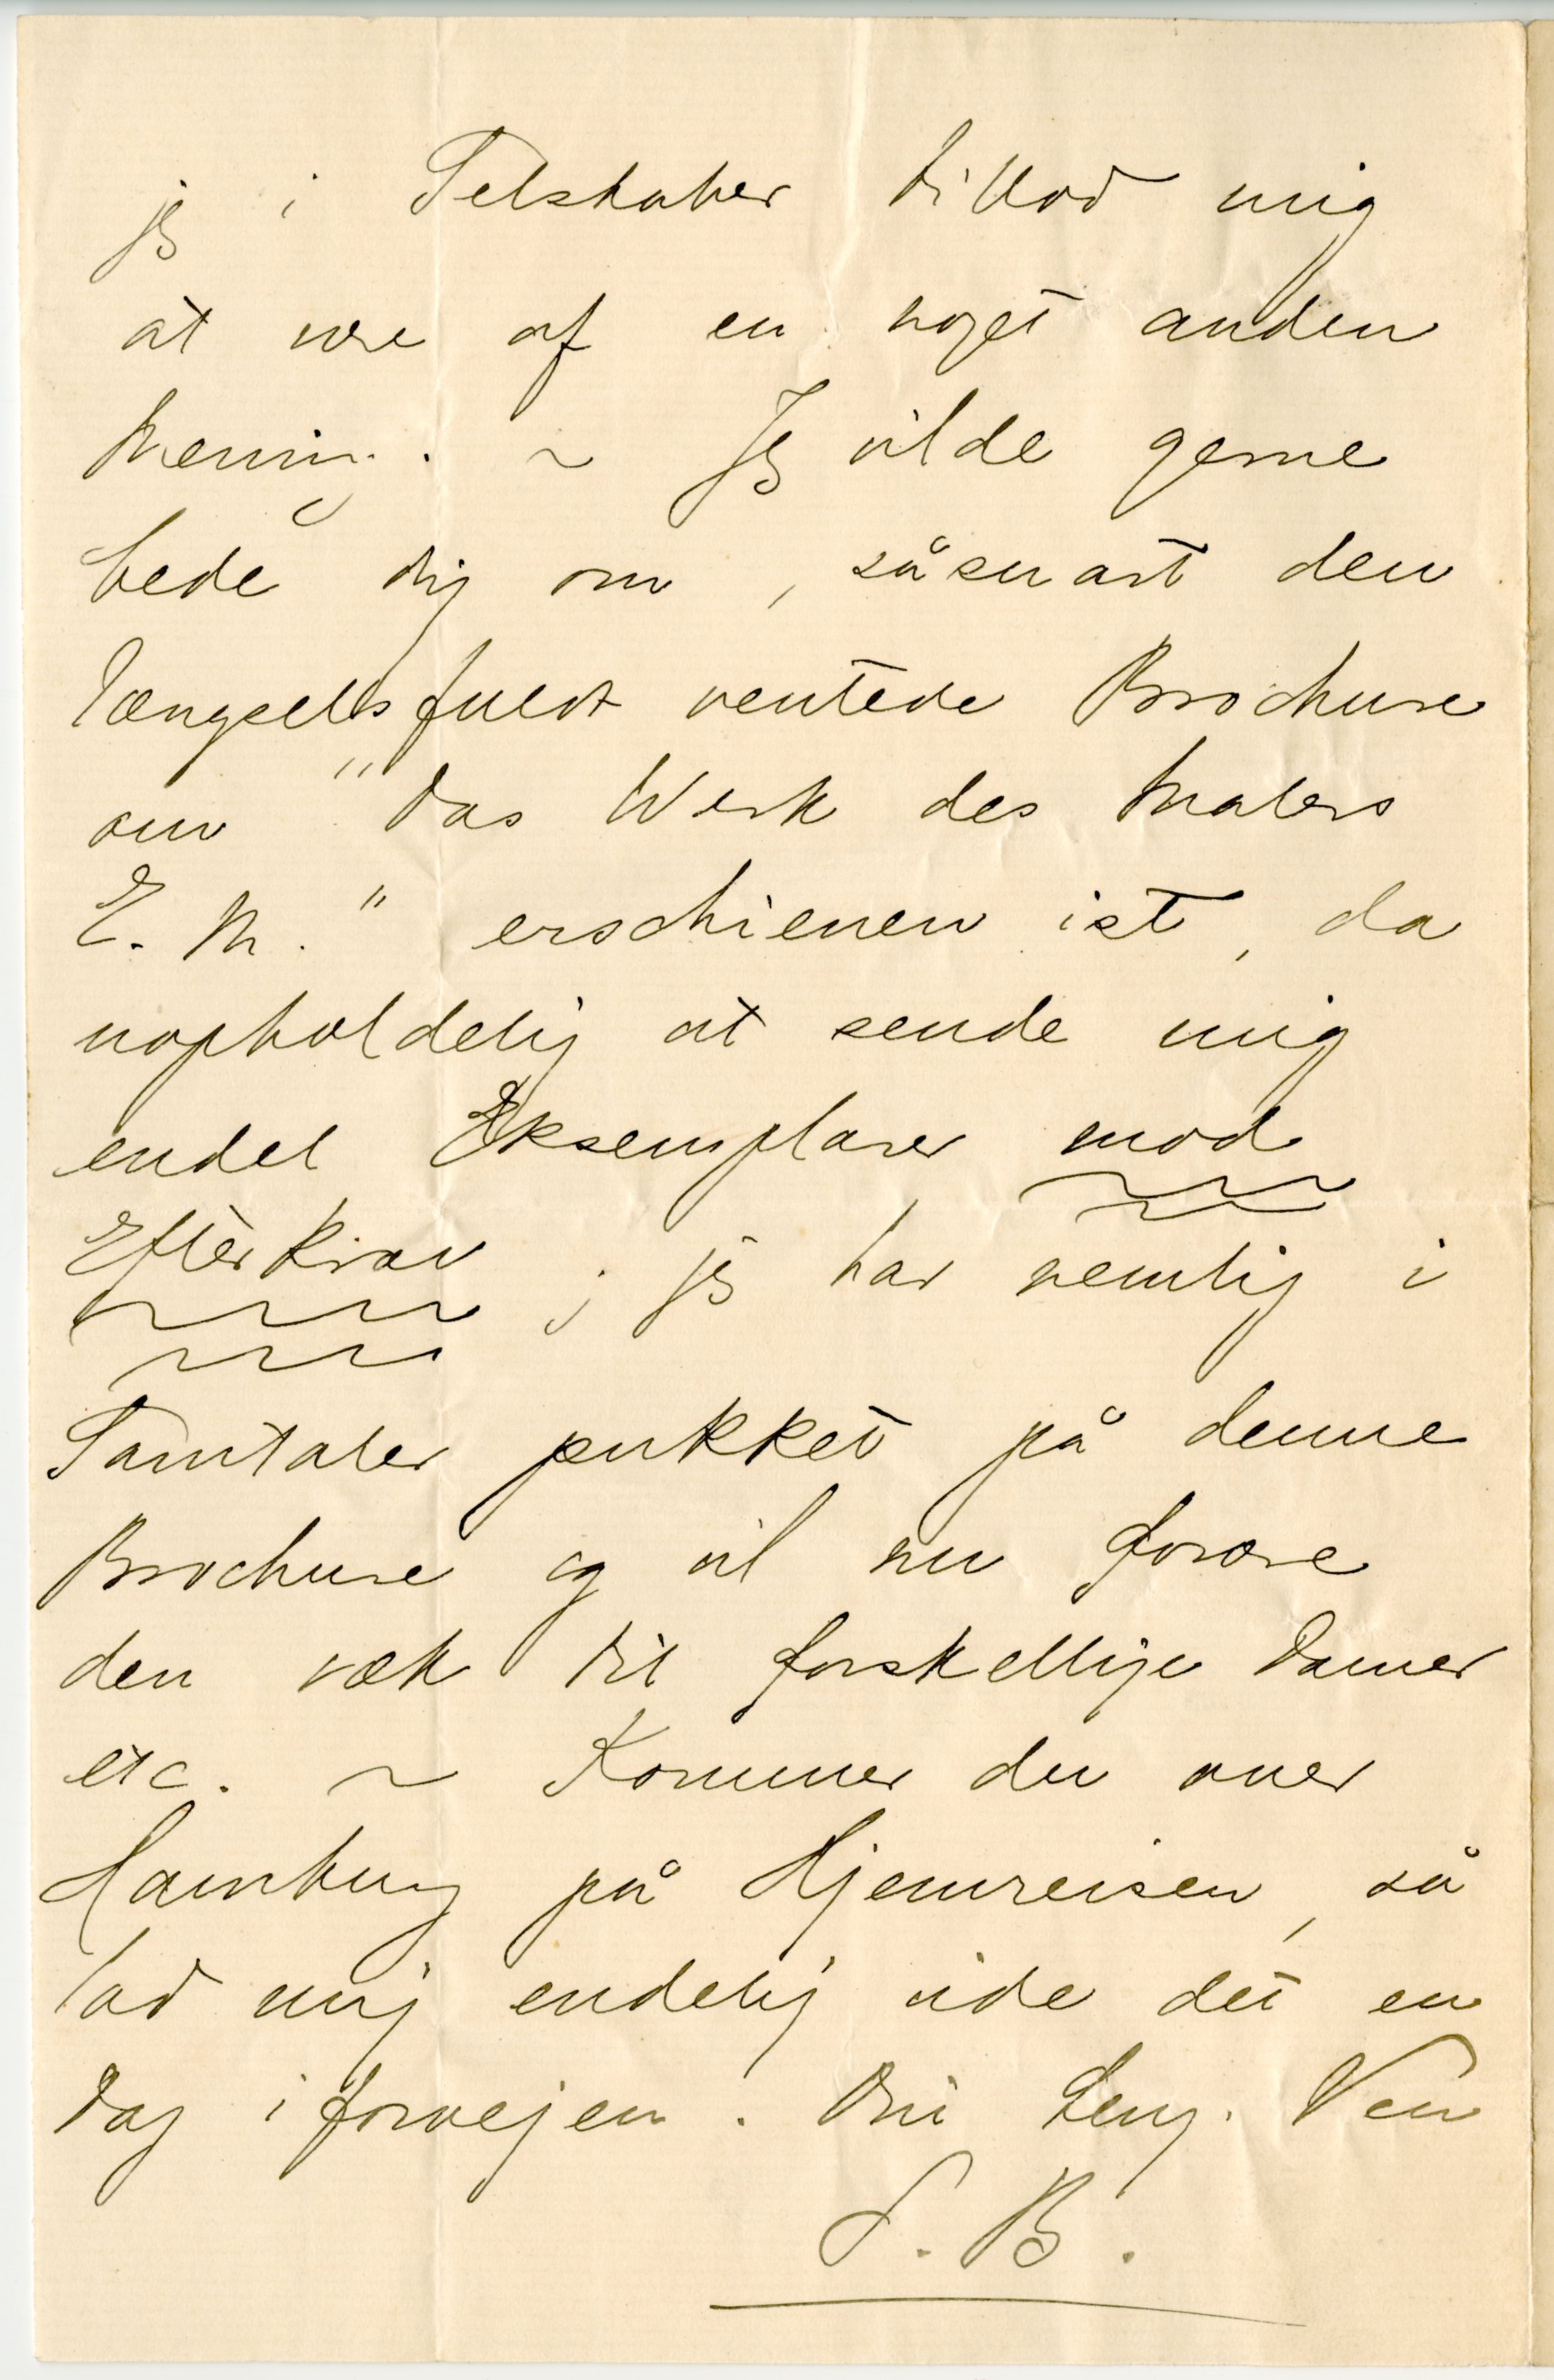 jeg i Selskaber tillod mig
at være af en noget anden
Mening. ~ Jeg vilde gerne
bede dig om, såsnart den
længselsfuldt ventede Brochure
om "Das Werk des Malers
E. M." erschienen ist, da
uopholdelig at sende mig
endel Eksemplarer mod
Efterkrav; jeg har nemlig i
Samtaler pukket på denne
Brochure og vil nu forære
den væk til forskellige Damer
etc. ~ Kommer du over
Hamburg på Hjemreisen, så
lad mig endelig vide det en
Dag iforvejen. Din heng. Ven
S. B.